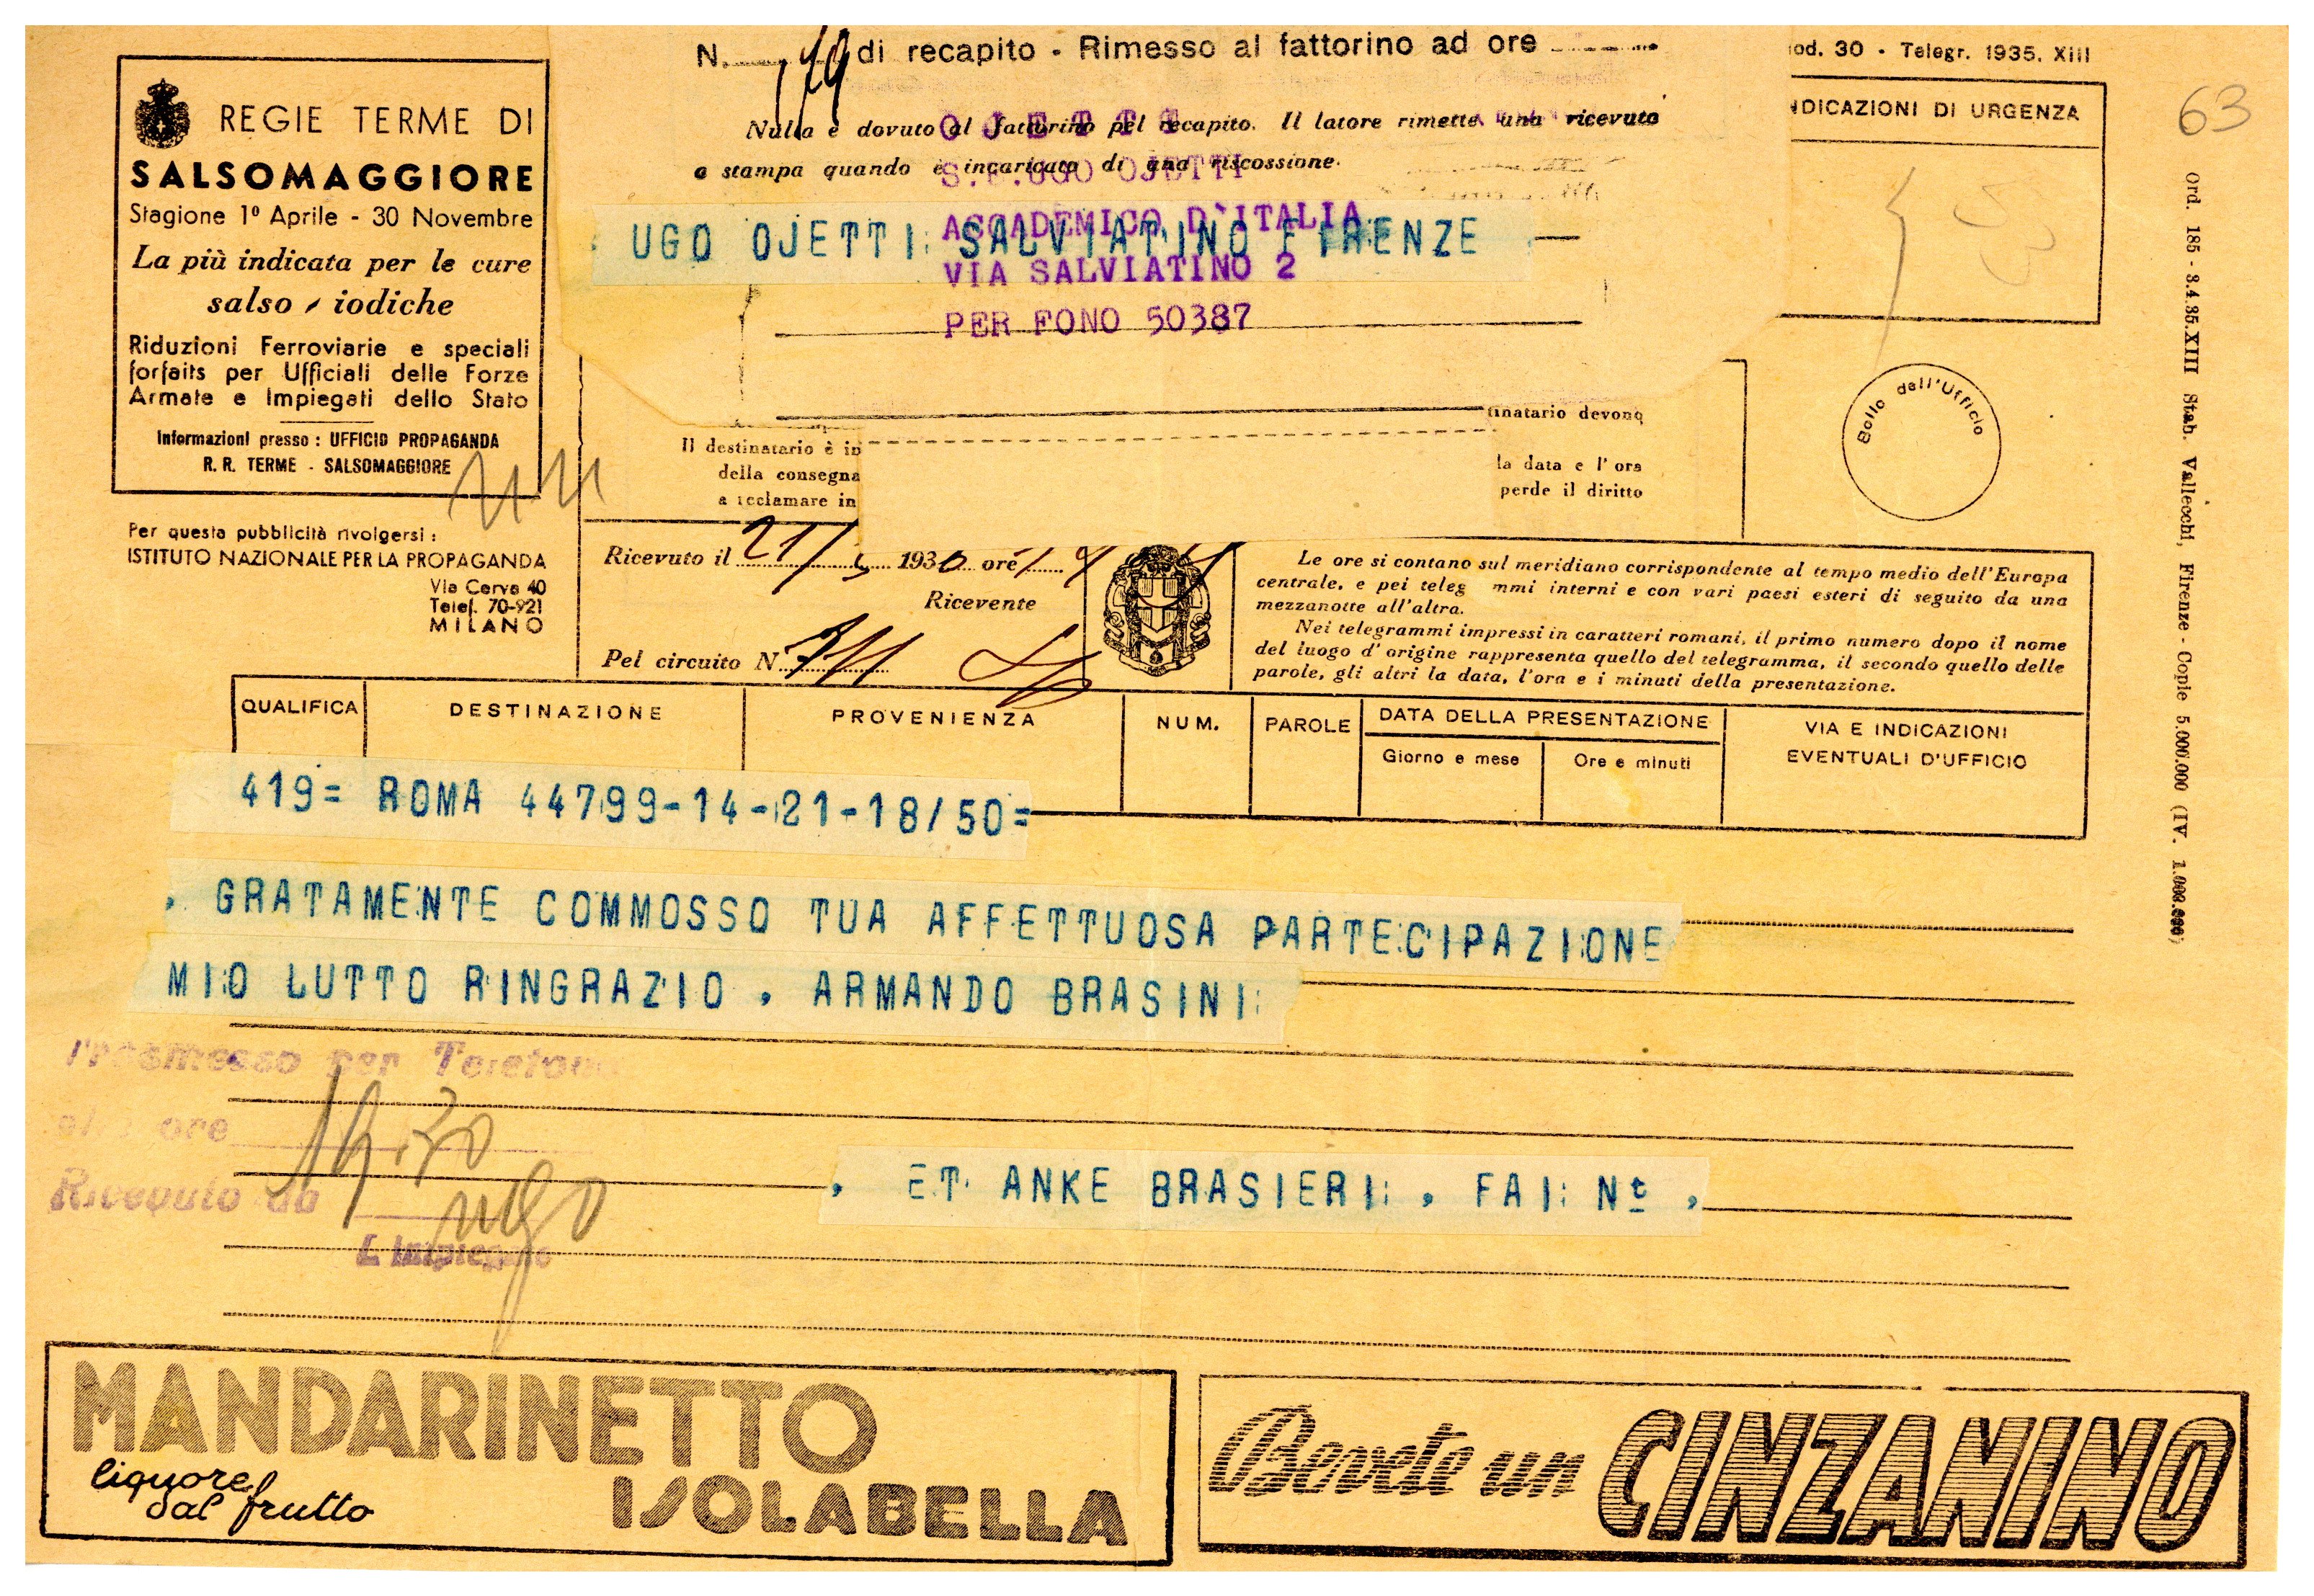 N. 179 di recapito - Rimesso al fattorino ad ore
Nulla è dovuto al fattorino pel recapito. Il latore rimette una ricevuta
a stampa quando è incaricato di una riscossione.
OJETTI
S.E.UGO OJETTI
ACCADEMICO D'ITALIA
VIA SALVIATINO 2
PER FONO 50387
UGO OJETTI SALVIATINO FIRENZE
od. 30 - Telegr. 1935. XIII
NDICAZIONI DI URGENZA
63
Ord. 185 - 3.4.35.XIII Stab. Vallecchi, Firenze - Copie 5.000.000 (IV. 1.000.000)
REGIE TERME DI
SALSOMAGGIORE
Stagione 1º Aprile - 30 Novembre
La più indicata per le cure
salso - iodiche
Riduzioni Ferroviarie e speciali
forfaits per Ufficiali delle Forze
Armate e Impiegati dello Stato
Informazioni presso : UFFICIO PROPAGANDA
R. R. TERME - SALSOMAGGIORE
Per questa pubblicità rivolgersi :
ISTITUTO NAZIONALE PER LA PROPAGANDA
Via Cerva 40
Telef. 70-921
MILANO
Il destinatario è in
della consegna
a reclamare in
tinatario devono
la data e l'ora
perde il diritto
Bollo dell'Ufficio
Ricevuto il 21/5 1936 ore
Ricevente
Pel circuito N.
Le ore si contano sul meridiano corrispondente al tempo medio dell'Europa
centrale, e pei teleg mmi interni e con vari paesi esteri di seguito da una
mezzanotte all'altra.
Nei telegrammi impressi in caratteri romani, il primo numero dopo il nome
del luogo d'origine rappresenta quello del telegramma, il secondo quello delle
parole, gli altri la data, l'ora e i minuti della presentazione.
QUALIFICA DESTINAZIONE PROVENIENZA NUM. PAROLE DATA DELLA PRESENTAZIONE VIA E INDICAZIONI
EVENTUALI D'UFFICIO
Giorno e mese Ore e minuti
419= ROMA 44799-14-21-18/50=
. GRATAMENTE COMMOSSO TUA AFFETTUOSA PARTECIPAZIONE
MIO LUTTO RINGRAZIO . ARMANDO BRASINI
Trasmesso per Telefono
ore 19.30
Ricevuto da ugo
L'Impiegato
. ET ANKE BRASIERI . FAI Nt .
MANDARINETTO
liquore
dal frutto
ISOLABELLA
Bevete un CINZANINO